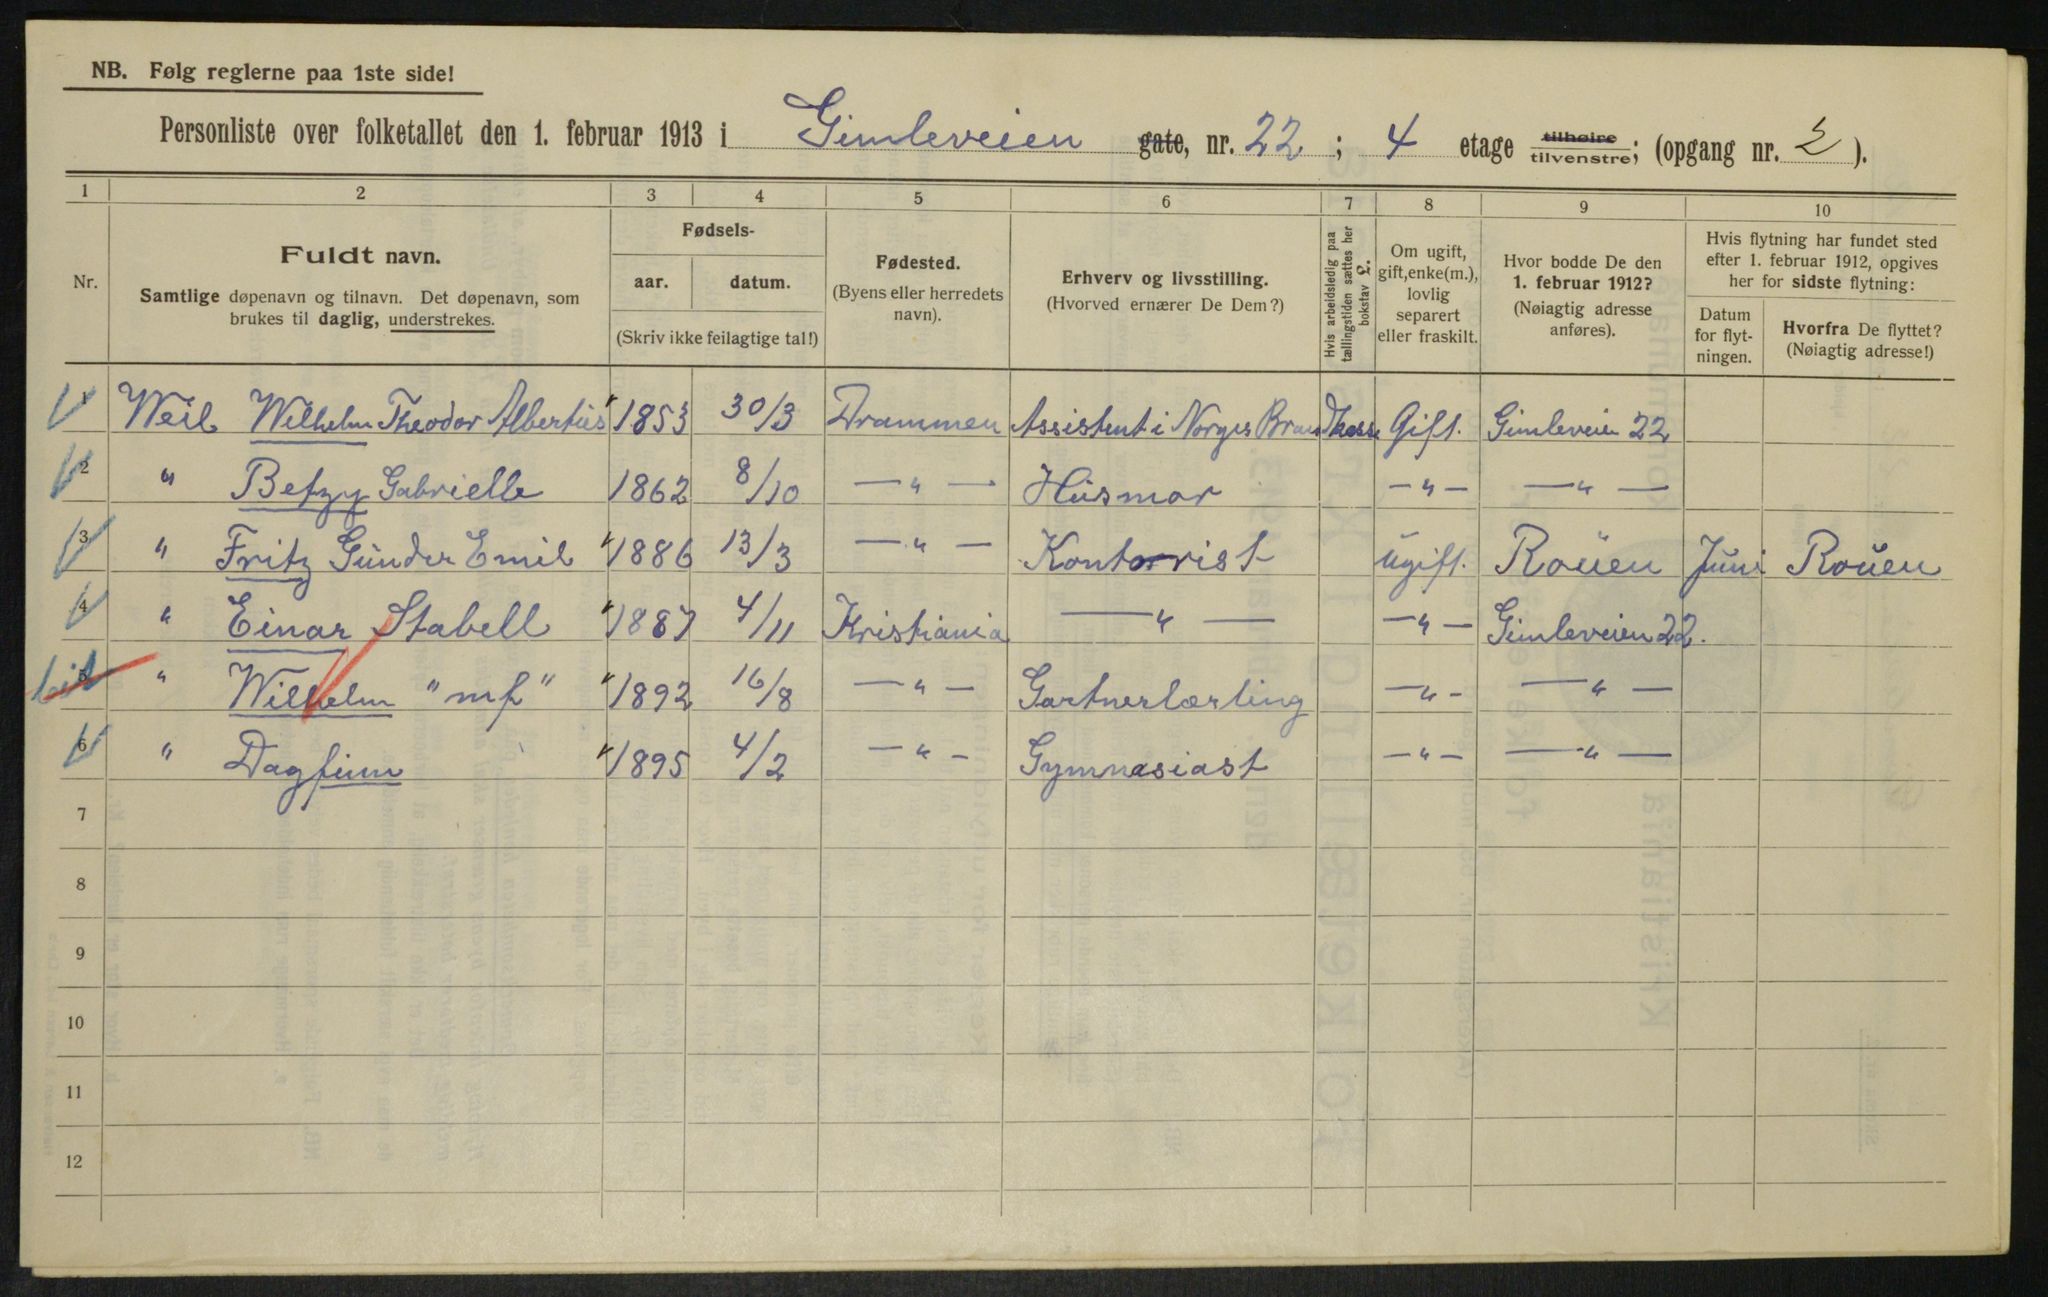 NB. Følg reglerne paa 1ste side!
Personliste over folketallet den 1. februar 1913 i Gimleveien gate, nr. 22 ; 4 etage tilhøire tilvenstre; (opgang nr. 2 ).
1 2 3 4 5 6 7 8 9 10
Nr.
Fuldt navn.
Samtlige døpenavn og tilnavn. Det døpenavn, som
brukes til daglig, understrekes.
Fødsels-
aar. datum.
(Skriv ikke feilagtige tal!)
Fødested.
(Byens eller herredets
navn).
Erhverv og livsstilling.
(Hvorved ernærer De Dem?)
Hvis arbeidsledig paa
tællingstiden sættes her
bokstav L.
Om ugift,
gift, enke(m.),
lovlig
separert
eller fraskilt.
Hvor bodde De den
1. februar 1912?
(Nøiagtig adresse
anføres).
Hvis flytning har fundet sted
efter 1. februar 1912, opgives
her for sidste flytning:
Datum
for flyt-
ningen.
Hvorfra De flyttet?
(Nøiagtig adresse!)
1 Weil Wilhelm Theodor Albertus 1853 30/3 Drammen Assistent i Norges Brandkasse Gift. Gimleveien 22
2 " Betzy Gabrielle 1862 8/10 — " — Husmor — " — — " —
3 " Fritz Gunder Emil 1886 13/3 — " — Kontorist ugift. Rouen Juni Rouen
4 " Einar Stabell 1887 4/11 Kristiania — " — — " — Gimleveien 22.
5 " Wilhelm " mf " 1892 16/8 — " — Gartnerlærling — " — — " —
6 " Dagfinn 1895 4/2 — " — Gymnasiast — " — — " —
7
8
9
10
11
12